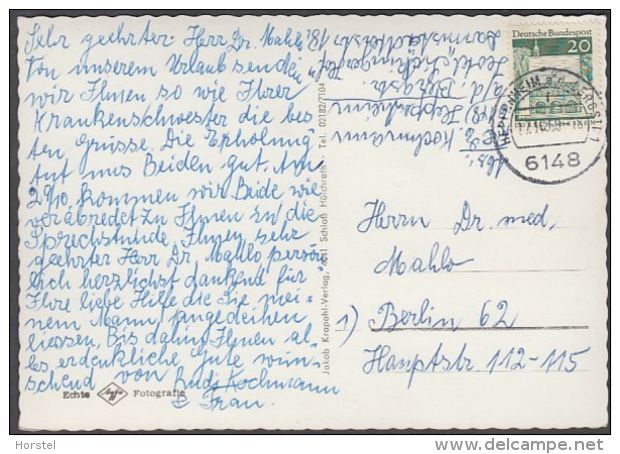 Sehr geehrter Herr Dr. Mahlo
Von unserem Urlaub senden
wir Ihnen so wie Ihrer
Krankenschwester die bes
ten Grüsse. Die Erholung
tut uns Beiden gut. Am
29/10. kommen wir Beide wie
verabredet zu Ihnen in die
Sprechstunde. Ihnen sehr
geehrter Herr Dr. Mahlo persön
lich herzlichst dankend für
Ihre liebe Hilfe die Sie mei-
nem Mann angedeihen
liessen. Bis dahin Ihnen al-
les erdenkliche Gute wün-
schend von Rudi Kochmann
& Frau.
Echte Agfa Fotografie
Jakob Krapohl-Verlag, 4041 Schloß Hülchrath, Tel. 02182/7104
Abs: R. Kochmann
6148 Heppenheim
a/d. Bergstr.
Darmstädterstr. 18
Deutsche Bundespost
20
HEPPENHEIM a.d. BERGSTR 1
6148
Herrn Dr. med.
Mahlo
1) Berlin 62
Hauptstr. 112-115
Horstel
www.delcampe.net